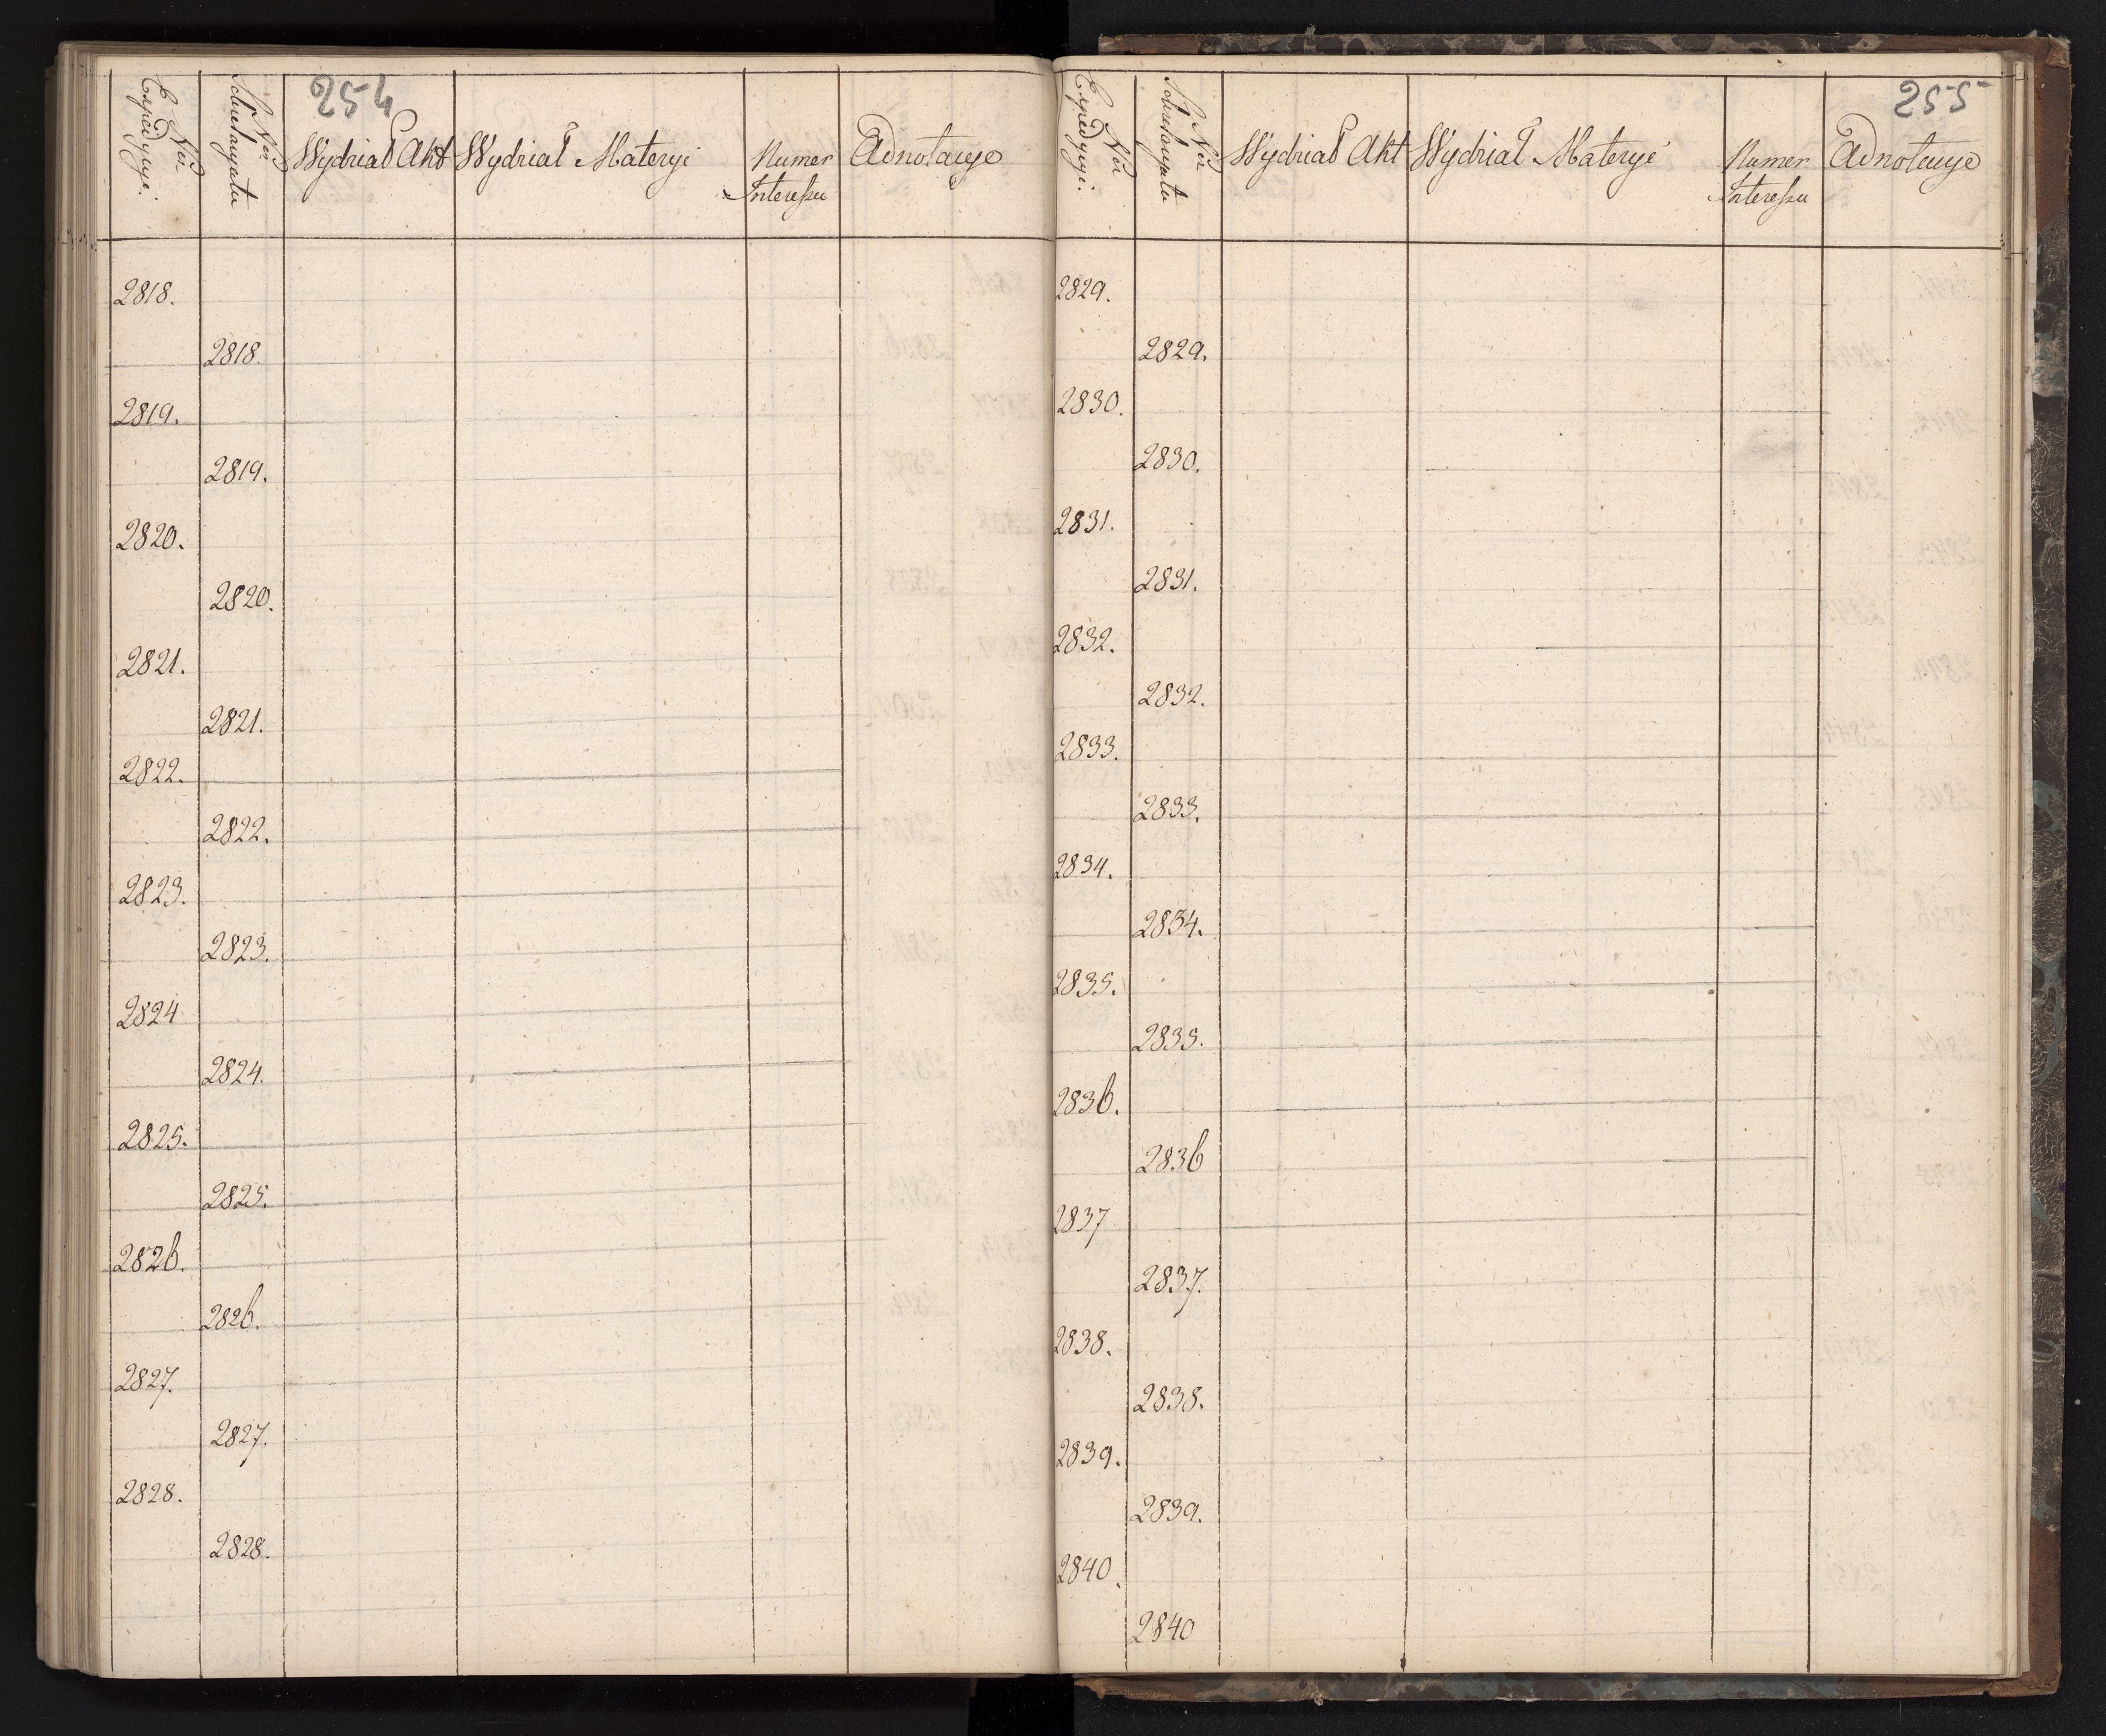 254
Nr Expedycyi.
Nr Sekretaryatu
Wydział Akt
Wydział Materyi
Numer Interessu
Adnotacye
2818.
2818.
2819.
2819.
2820.
2820.
2821.
2821.
2822.
2822.
2823.
2823.
2824
2824.
2825.
2825.
2826.
2826.
2827.
2827.
2828.
2828.
255
Nr Expedycyi.
Nr Sekretaryatu
Wydział Akt
Wydział Materyi
Numer Interessu
Adnotacye
2829.
2829.
2830.
2830.
2831.
2831.
2832.
2832.
2833.
2833.
2834.
2834.
2835.
2835.
2836.
2836
2837
2837.
2838.
2838.
2839.
2839.
2840.
2840